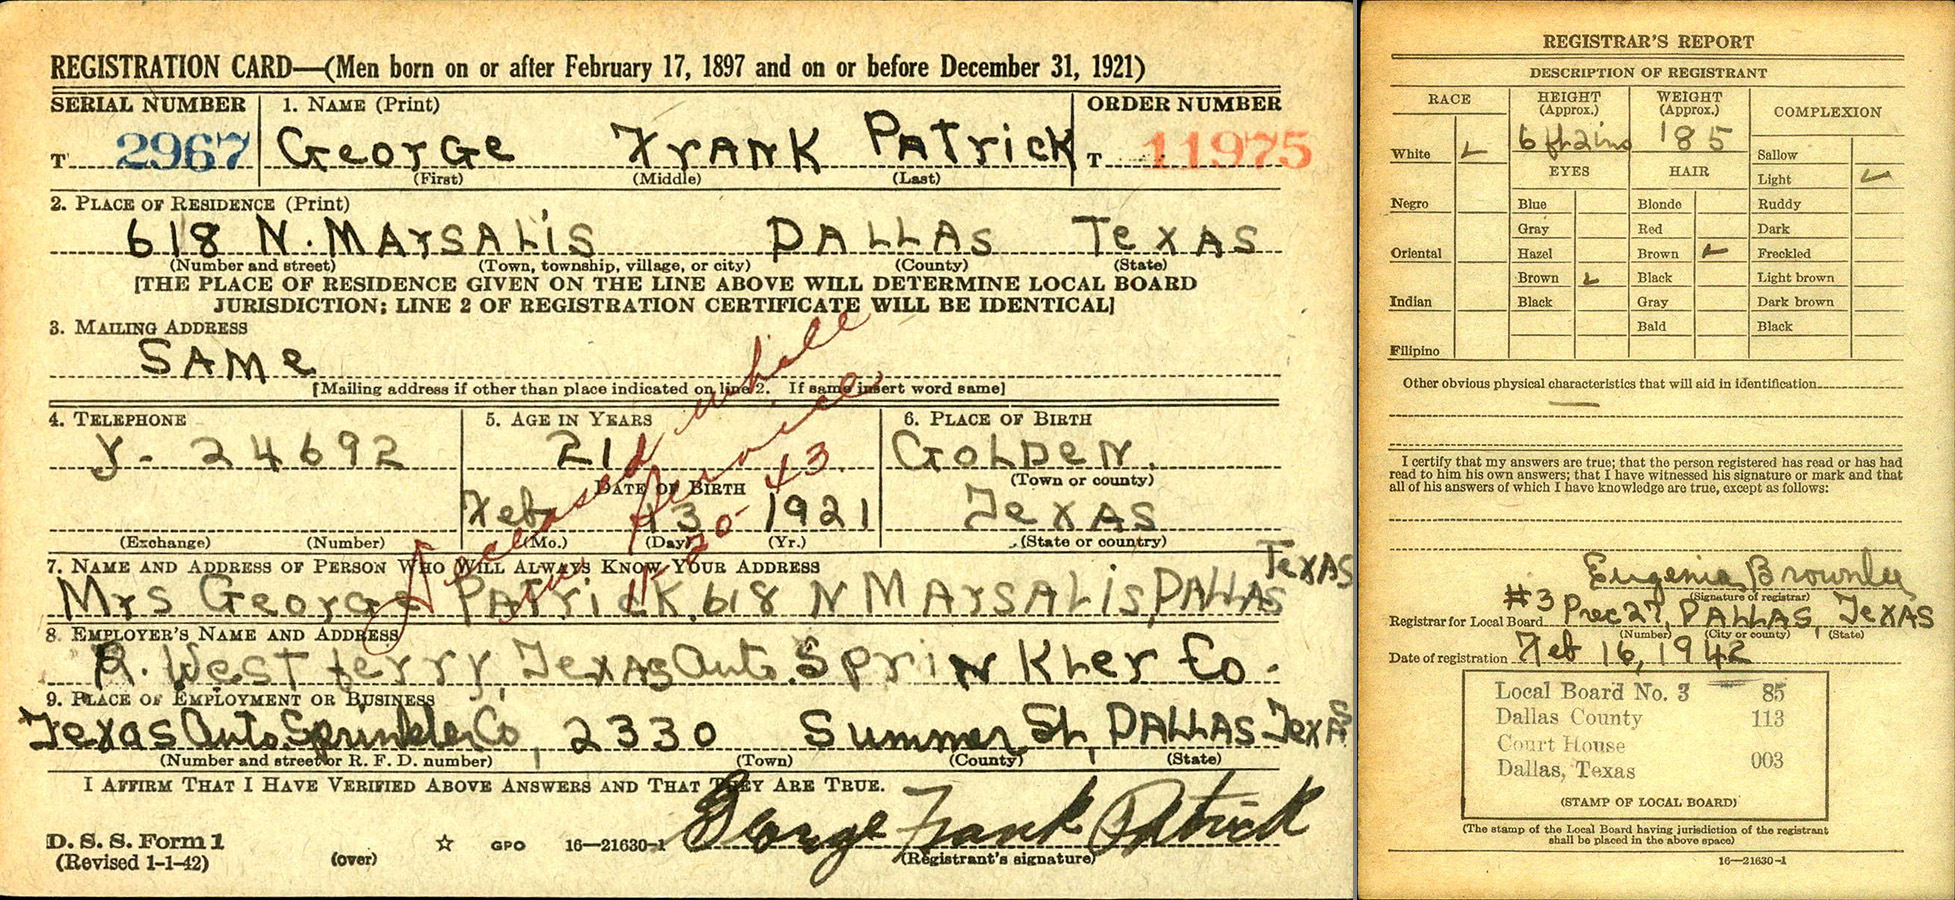 REGISTRATION CARD—(Men born on or after February 17, 1897 and on or before December 31, 1921)
SERIAL NUMBER
1. NAME (Print)
ORDER NUMBER
T 2967
George Frank Patrick
T 11975
(First) (Middle) (Last)
2. PLACE OF RESIDENCE (Print)
618 N. Marsalis DALLAS Texas
(Number and street) (Town, township, village, or city) (County) (State)
[THE PLACE OF RESIDENCE GIVEN ON THE LINE ABOVE WILL DETERMINE LOCAL BOARD
JURISDICTION; LINE 2 OF REGISTRATION CERTIFICATE WILL BE IDENTICAL]
3. MAILING ADDRESS
SAMe
[Mailing address if other than place indicated on line 2. If same insert word same]
4. TELEPHONE
5. AGE IN YEARS
6. PLACE OF BIRTH
Y- 24692
21
GOLDeN.
DATE OF BIRTH
(Town or county)
Feb 13 1921
TexAS
(Exchange) (Number)
(Mo.) (Day) (Yr.)
(State or country)
Deceased while
in Service
11-20-43
7. NAME AND ADDRESS OF PERSON WHO WILL ALWAYS KNOW YOUR ADDRESS
Mrs George Patrick, 618 N Marsalis, DALLAS Texas
8. EMPLOYER'S NAME AND ADDRESS
R. Westferry, Texas Auto. Sprinkler Co.
9. PLACE OF EMPLOYMENT OR BUSINESS
Texas Auto. Sprinkler Co, 2330 Summer St, DALLAS TexAS
(Number and street or R. F. D. number) (Town) (County) (State)
I AFFIRM THAT I HAVE VERIFIED ABOVE ANSWERS AND THAT THEY ARE TRUE.
George Frank Patrick
D. S. S. Form 1
(Revised 1-1-42) (over) ☆ GPO 16—21630-1 (Registrant's signature)
REGISTRAR'S REPORT
DESCRIPTION OF REGISTRANT
RACE
HEIGHT (Approx.)
WEIGHT (Approx.)
COMPLEXION
6 ft 2 ins 185
White ✓
Sallow
EYES HAIR
Light ✓
Negro Blue Blonde Ruddy
Gray Red Dark
Oriental Hazel Brown ✓ Freckled
Brown ✓ Black Light brown
Indian Black Gray Dark brown
Bald Black
Filipino
Other obvious physical characteristics that will aid in identification
I certify that my answers are true; that the person registered has read or has had
read to him his own answers; that I have witnessed his signature or mark and that
all of his answers of which I have knowledge are true, except as follows:
Eugenia Brownlee
(Signature of registrar)
Registrar for Local Board #3 Prec 27, DALLAS, TexAS
(Number) (City or county) (State)
Date of registration Feb 16, 1942
Local Board No. 3 85
Dallas County 113
Court House 003
Dallas, Texas
(STAMP OF LOCAL BOARD)
(The stamp of the Local Board having jurisdiction of the registrant
shall be placed in the above space)
16—21630-1